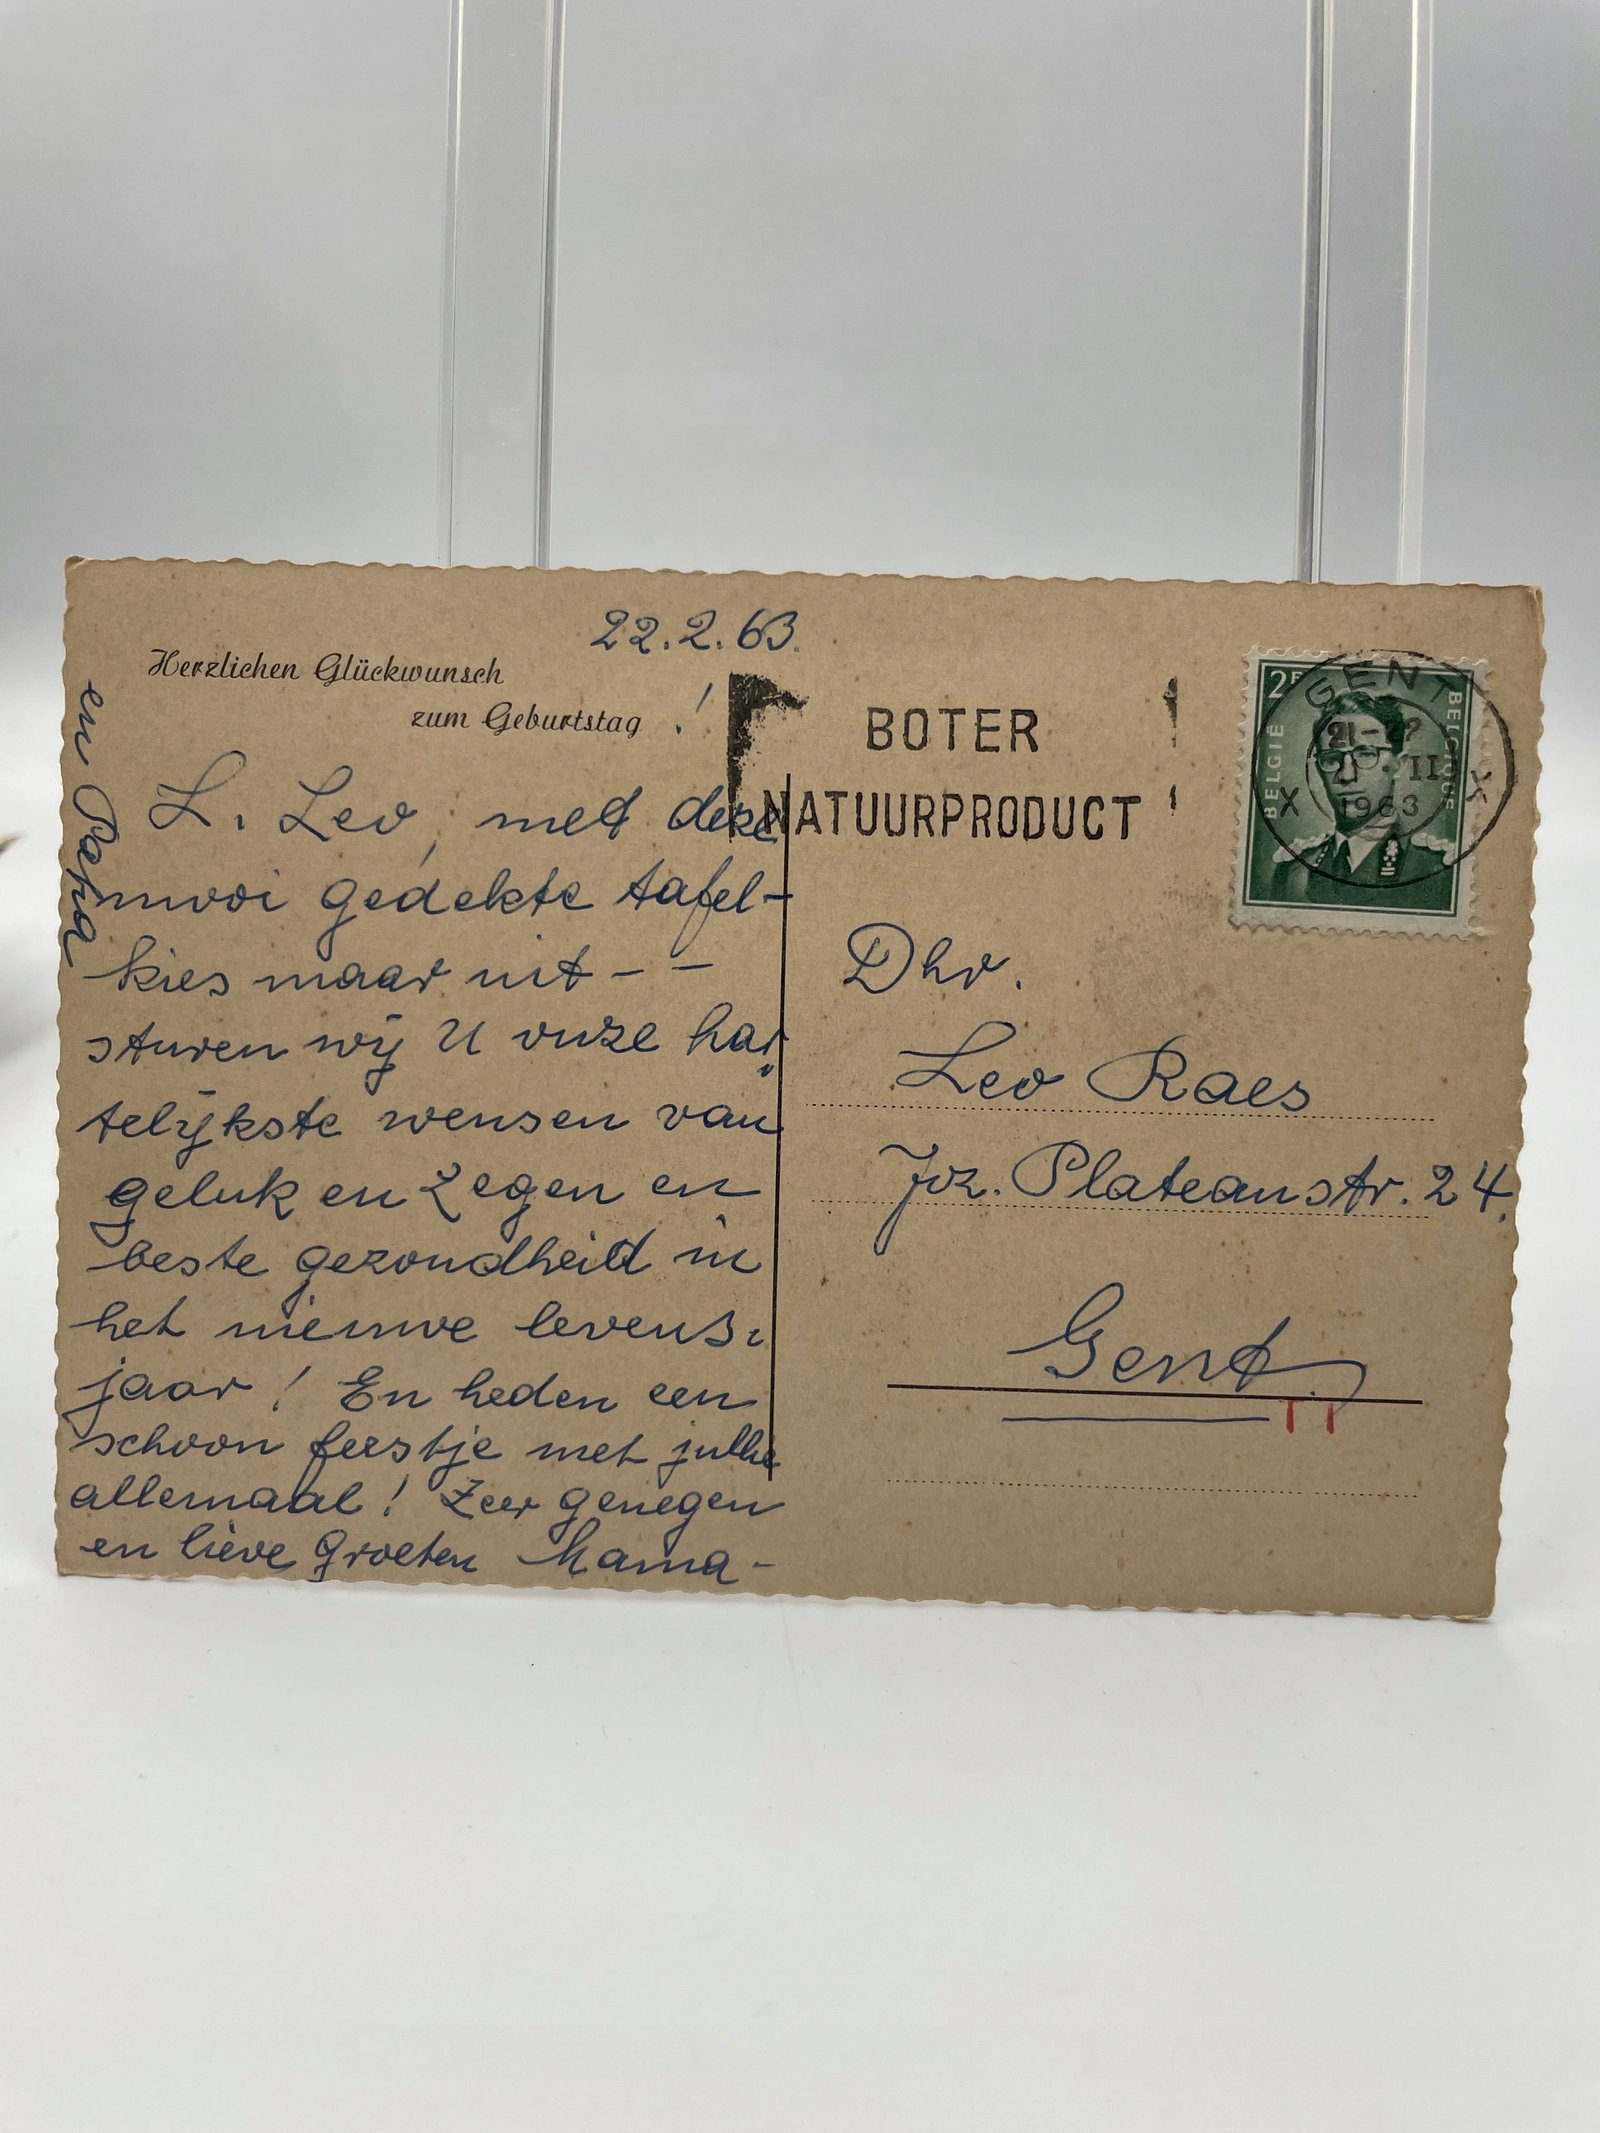 22.2.63.
Herzlichen Glückwunsch
zum Geburtstag !
L. Leo, met deze
mooi gedekte tafel-
kies maar uit - -
sturen wij U onze har„
telijkste wensen van
geluk en zegen en
beste gezondheid in
het nieuwe levens-
jaar ! En heden een
schoon feestje met jullie
allemaal ! Zeer genegen
en lieve groeten Mama -
en Papa
BOTER
NATUURPRODUCT
2F
BELGIË
BELGIQUE
GENT
X X
21-22
II
1963
Dhr.
Leo Raes
Joz. Plateaustr. 24.
Gent